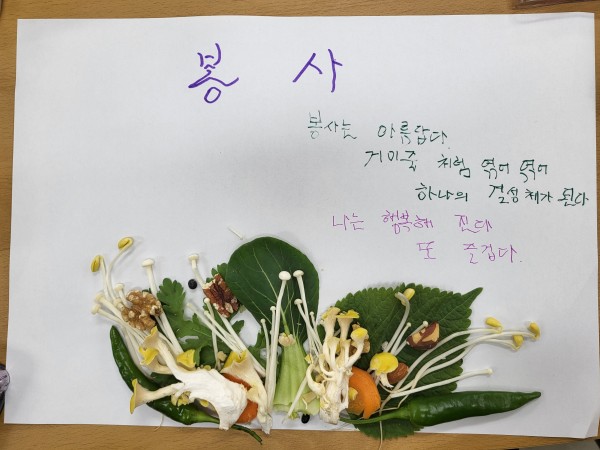 봉 사
봉사는 아름답다.
체험 엮어 엮어
하나의 결성체가 된다
나는 행복해 진다
또 즐겁다.